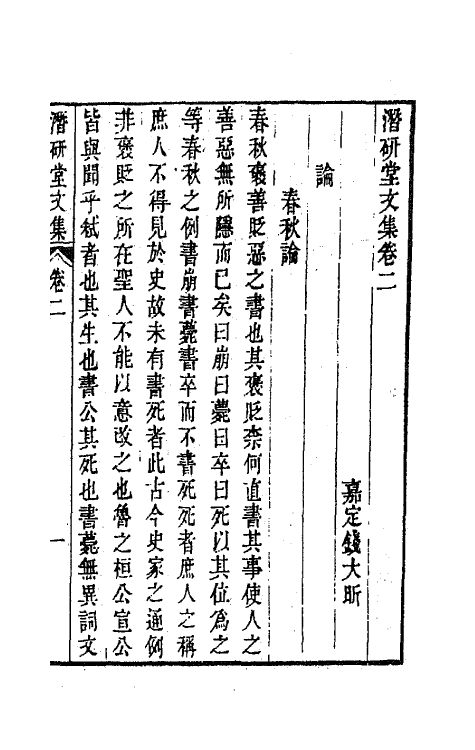 潛研堂文集卷二
嘉定錢大昕
論
春秋論
春秋褒善貶惡之書也其褒貶奈何直書其事使人之
善惡無所隱而已矣曰崩曰薨曰卒曰死以其位爲之
等春秋之例書崩書薨書卒而不書死死者庶人之稱
庶人不得見於史故未有書死者此古今史家之通例
非褒貶之所在聖人不能以意改之也魯之桓公宣公
皆與聞乎弒者也其生也書公其死也書薨無異詞文
潛研堂文集 卷二 一